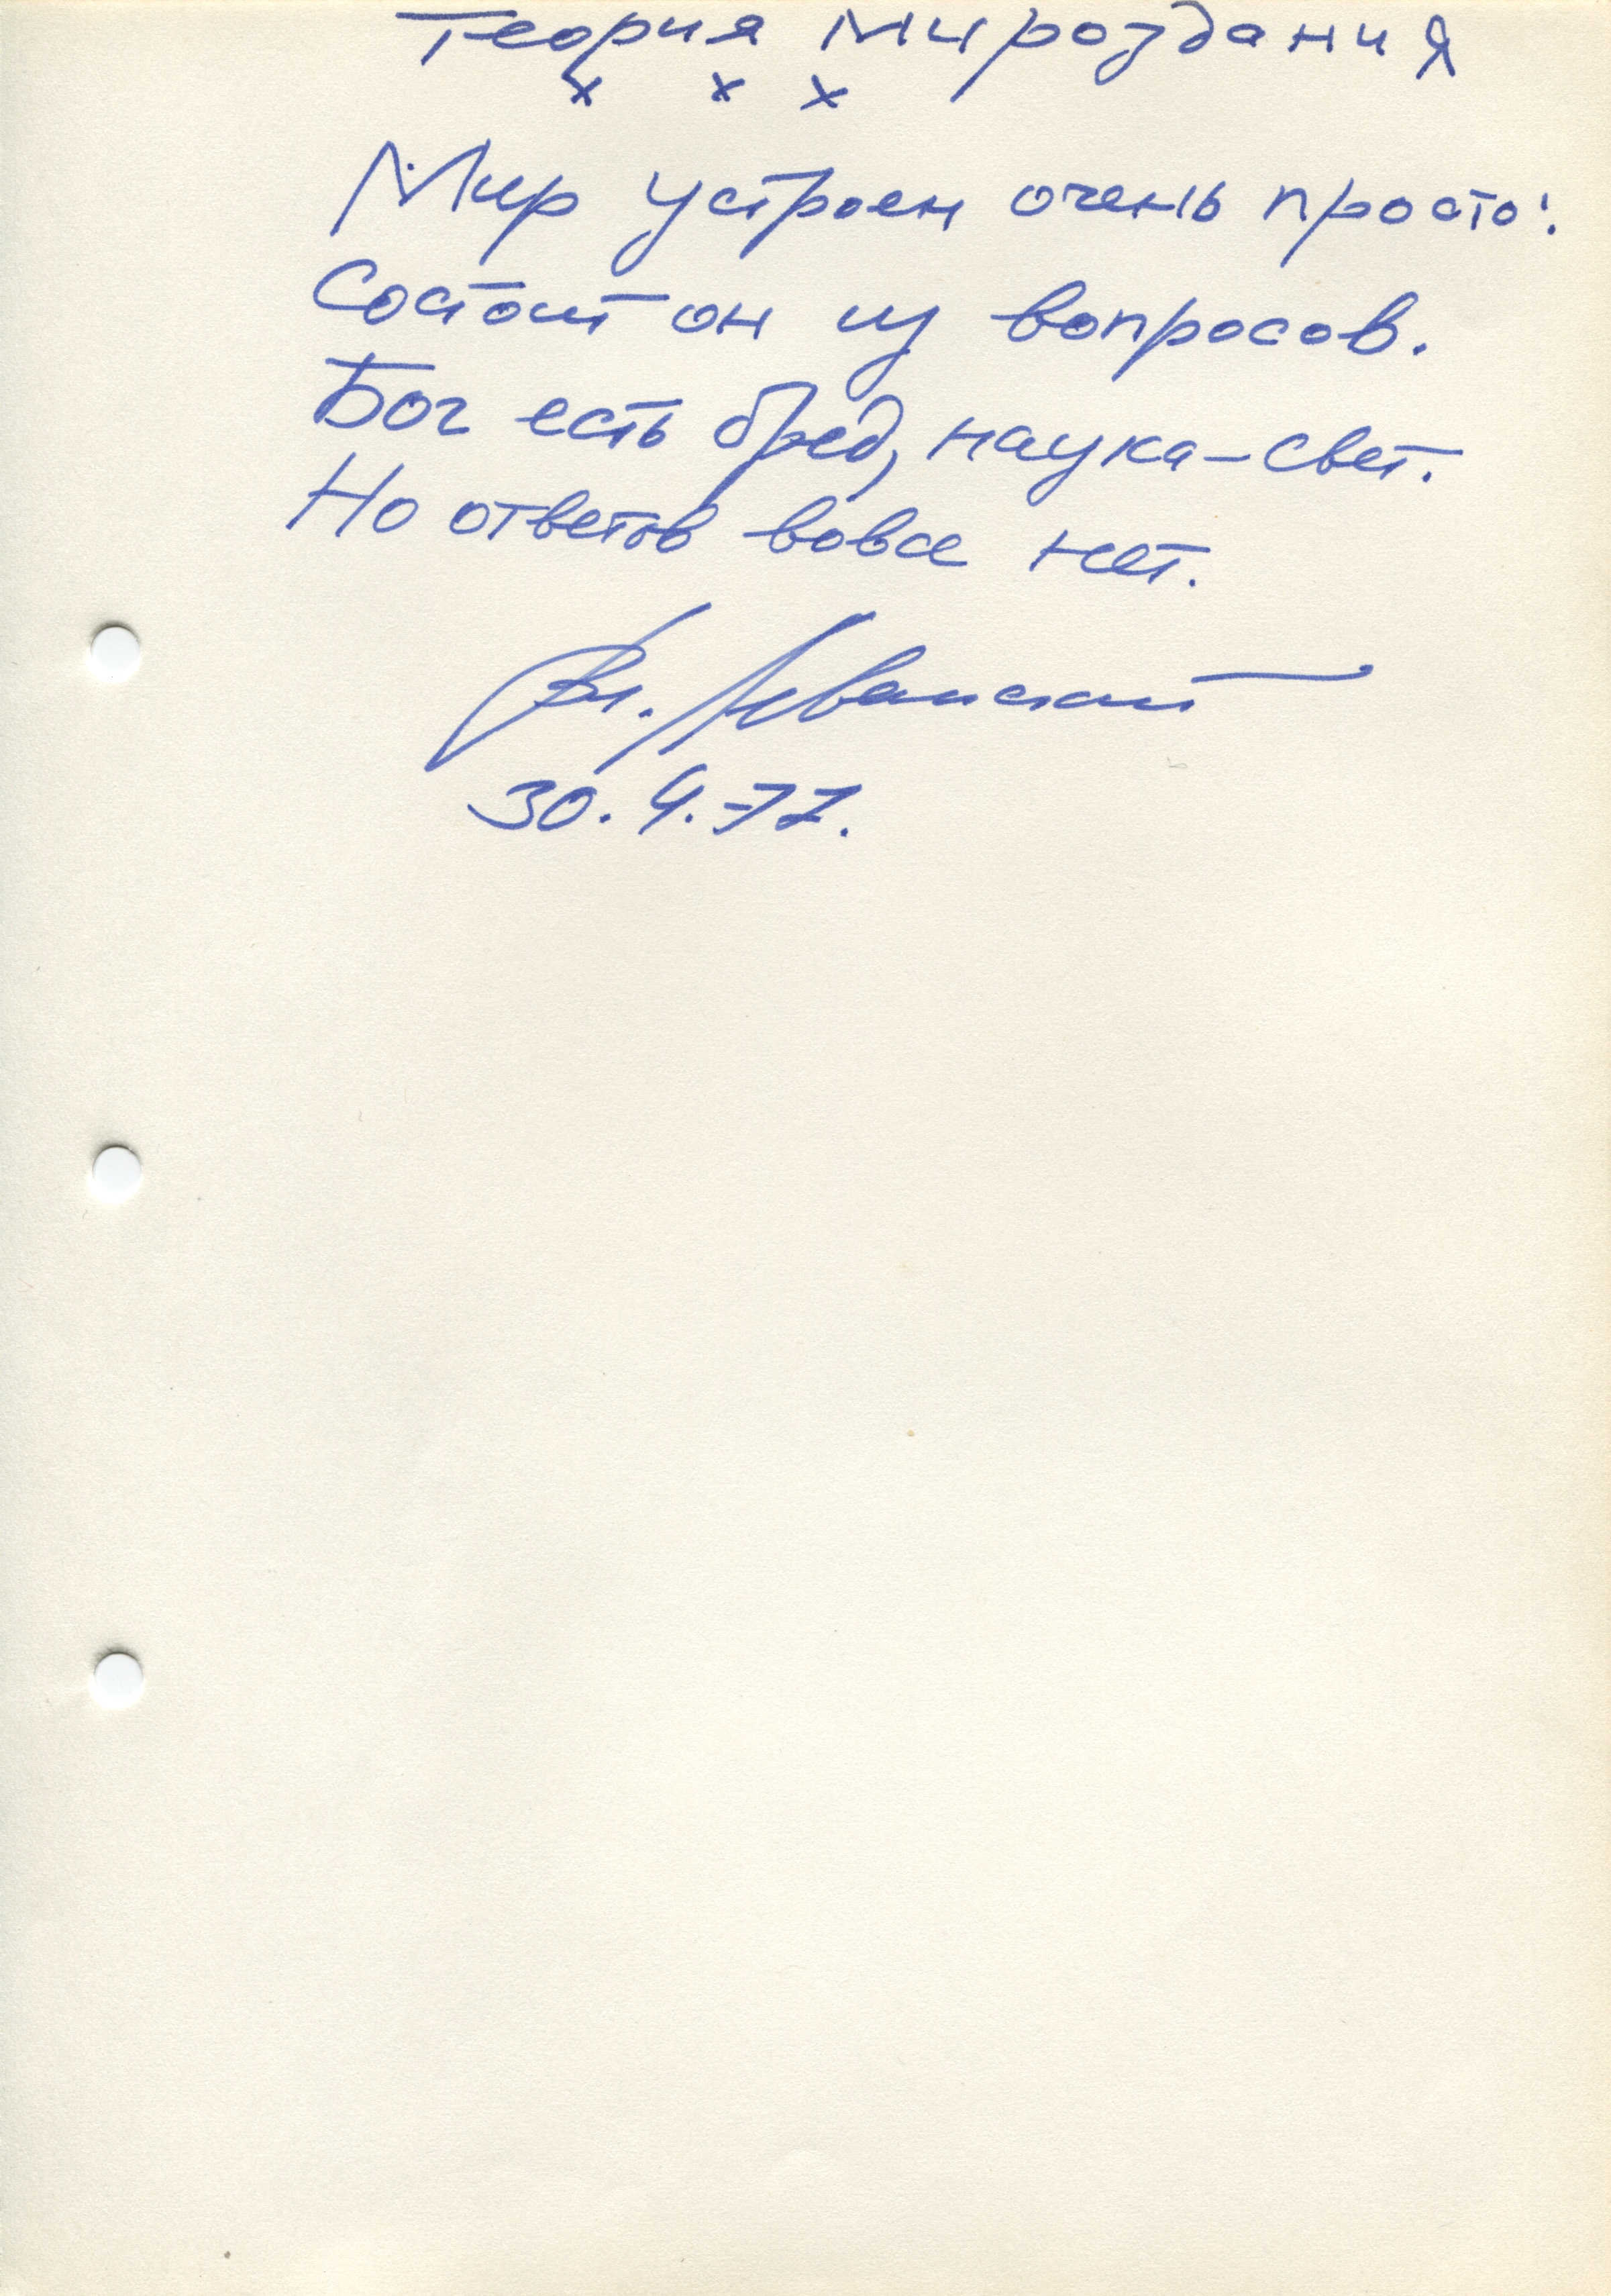 Теория Мироздания
x x x
Мир устроен очень просто:
Состоит он из вопросов.
Бог есть бред, наука-свет.
Но ответов вовсе нет.
Вл. Леванский
30.4.77.